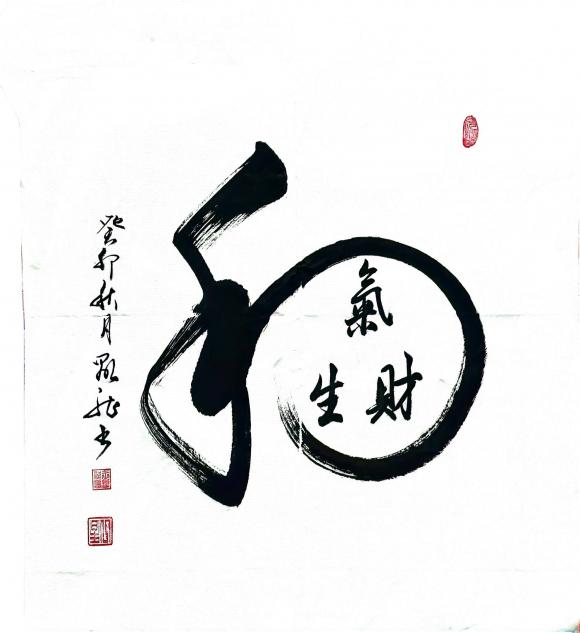 和
氣
財
生
癸卯秋月
书